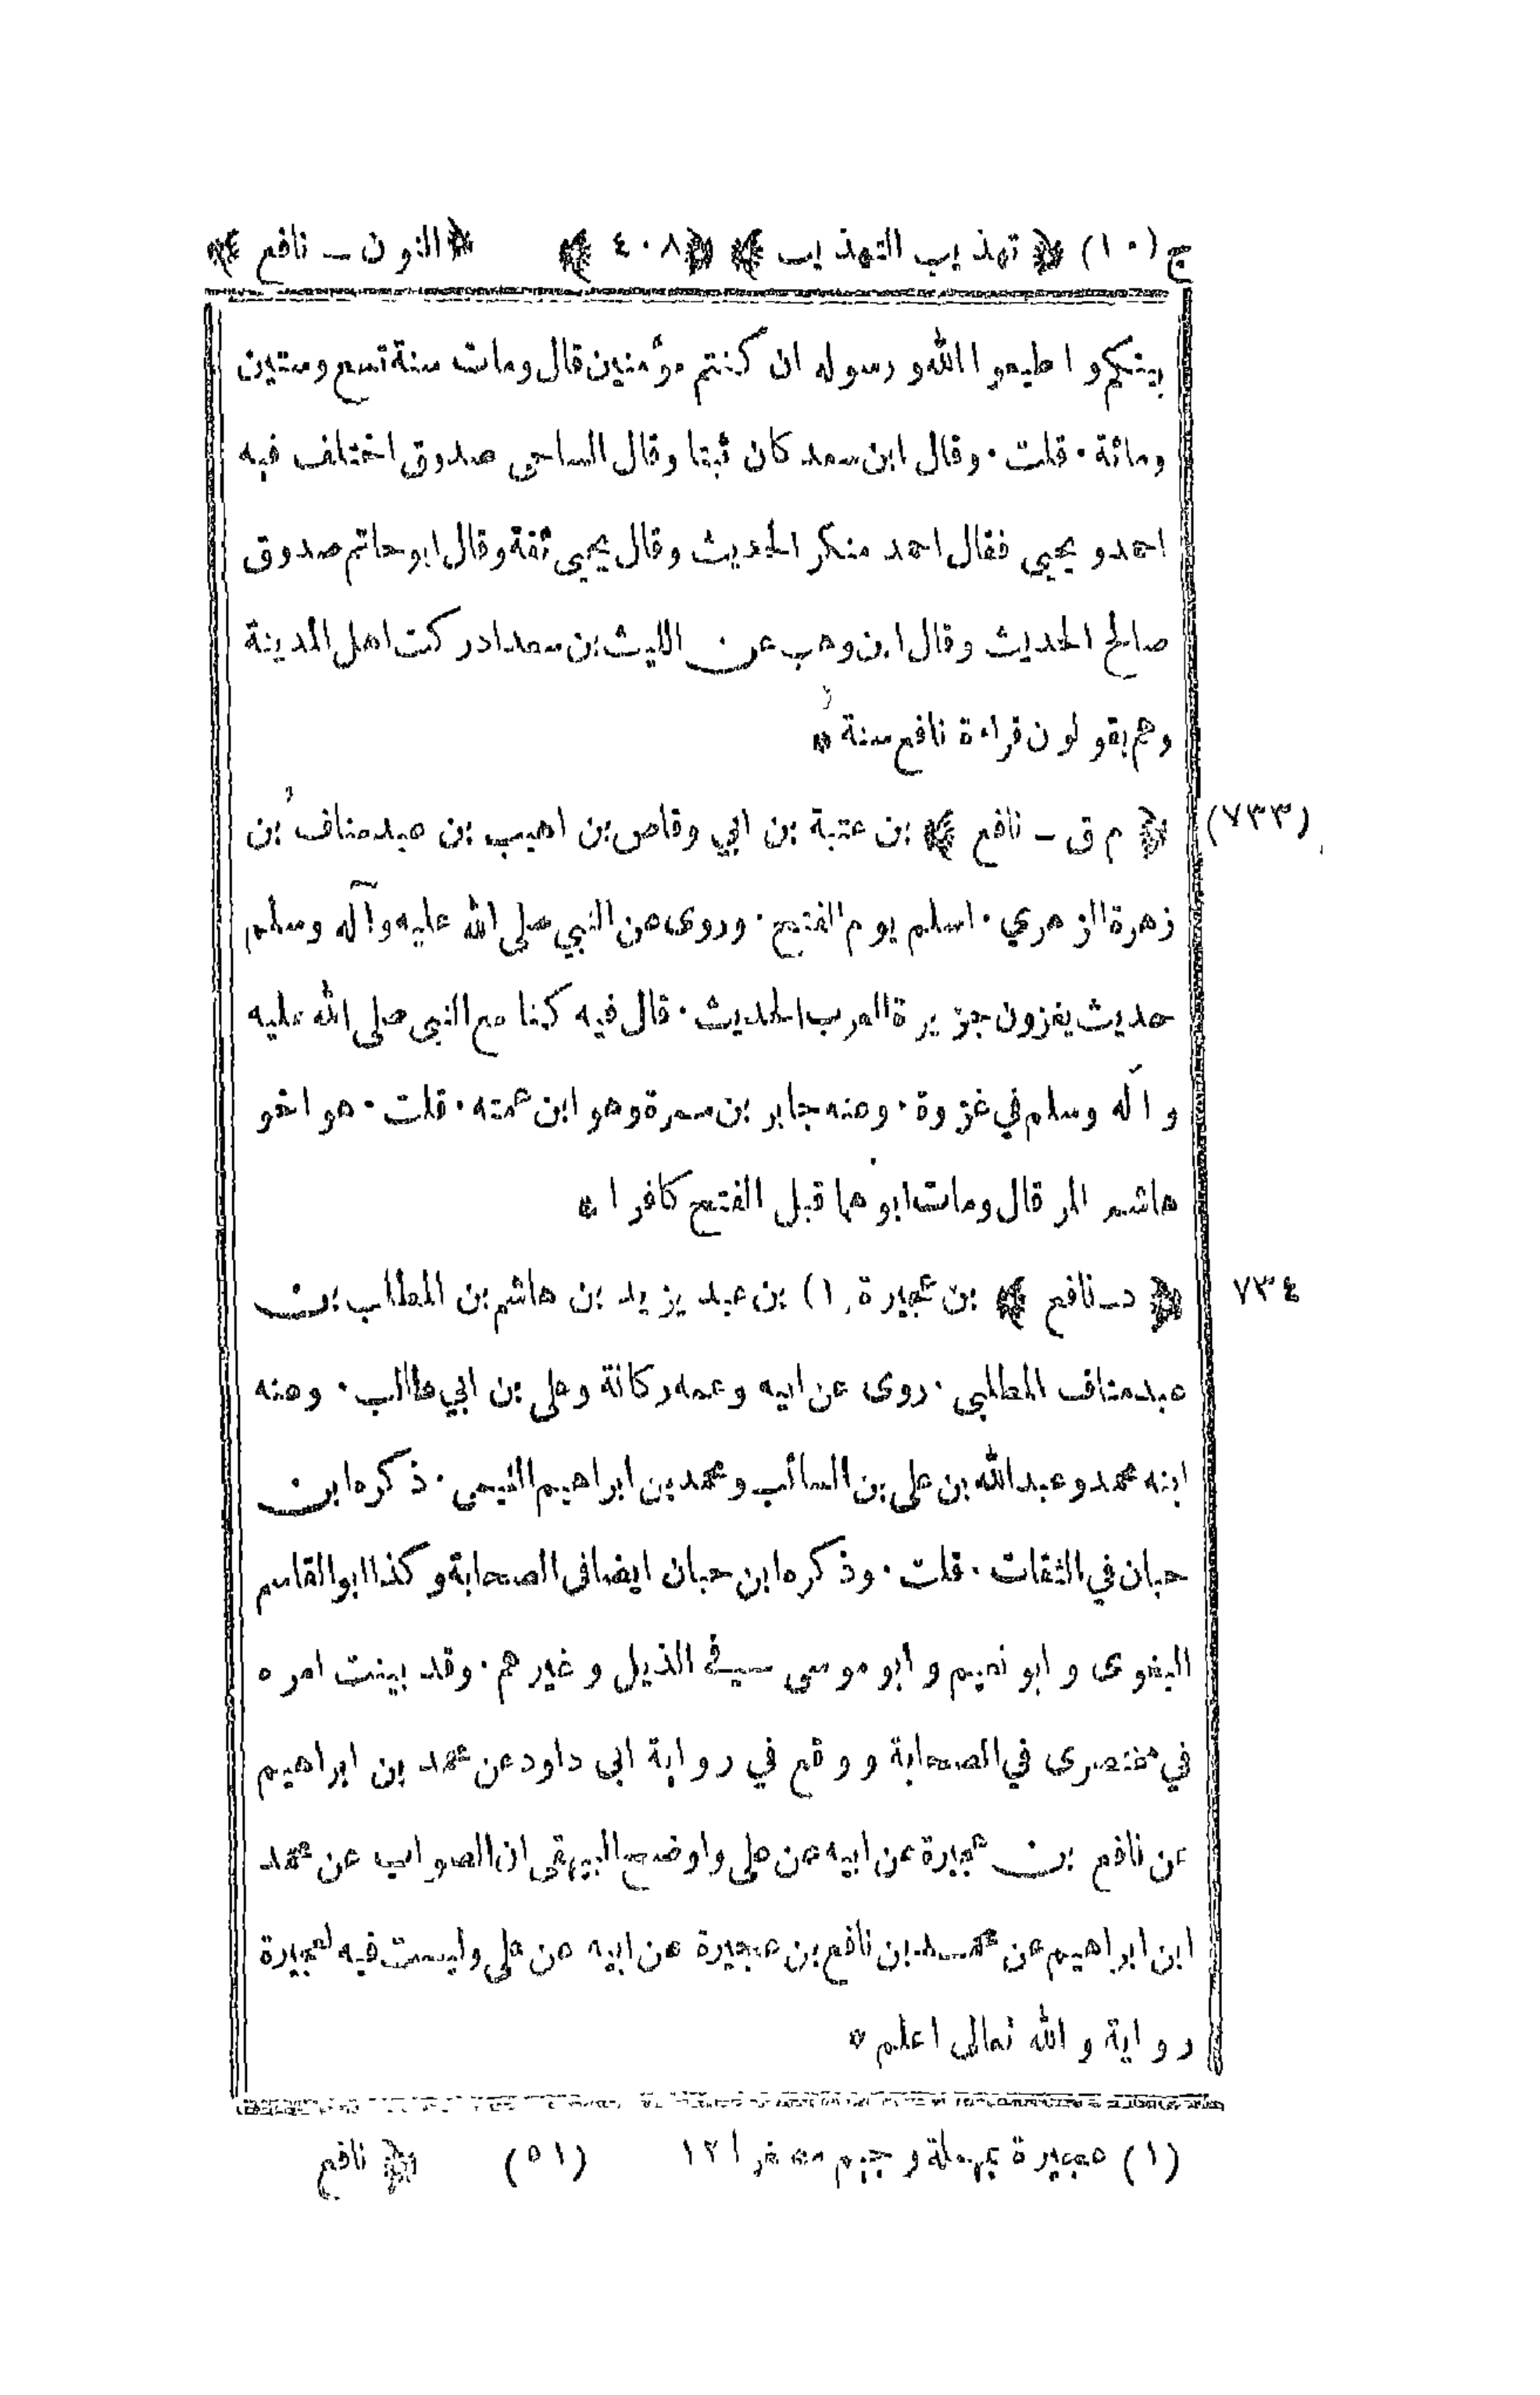 ج (١٠) ﴿ تهذيب التهذيب ﴾ ﴿ ٤٠٨ ﴾ ﴿ النون ـ نافع ﴾
بينكم و اطيعوا الله و رسوله ان كنتم مؤمنين قال ومات سنة تسع وستين
ومائة ٠ قلت ٠ وقال ابن سعد كان ثبتا وقال الساجى صدوق اختلف فيه
احمد و يحيى فقال احمد منكر الحديث وقال يحيى ثقة وقال ابو حاتم صدوق
صالح الحديث وقال ابن وهب عن الليث بن سعد ادركت اهل المدينة
وهم يقولون قراءة نافع سنة *
(٧٣٣) ﴿ م ق ـ نافع ﴾ بن عتبة بن ابي وقاص بن اهيب بن عبد مناف بن
زهرة الزهري ٠ اسلم يوم الفتح ٠ وروى عن النبي صلى الله عليه وآله وسلم
حديث يغزون جزيرة العرب الحديث ٠ قال فيه كنا مع النبى صلى الله عليه
وآله وسلم في غزوة ٠ وعنه جابر بن سمرة وهو ابن عمته ٠ قلت ٠ هو اخو
هاشم المرقال ومات ابوهما قبل الفتح كافرا *
٧٣٤ ﴿ د ـ نافع ﴾ بن عجيرة (١) بن عبد يزيد بن هاشم بن المطلب بن
عبد مناف المطلبي ٠ روى عن ابيه وعمه ركانة وعلى بن ابي طالب ٠ وعنه
ابنه محمد وعبد الله بن على بن السائب ومحمد بن ابراهيم التيمى ٠ ذكره ابن
حبان في الثقات ٠ قلت ٠ وذكره ابن حبان ايضا فى الصحابة وكذا ابو القاسم
البغوى و ابو نعيم و ابو موسى في الذيل و غيرهم ٠ وقد بينت امره
في مختصرى في الصحابة و وقع في رواية ابى داود عن محمد بن ابراهيم
عن نافع بن عجيرة عن ابيه عن على واوضح البيهقى ان الصواب عن محمد
ابن ابراهيم عن محمد بن نافع بن عجيرة عن ابيه عن على وليست فيه لعجيرة
رواية و الله تعالى اعلم *
(١) عجيرة بمهملة و جيم مصغرا ١٢ (٥١) ﴿ نافع